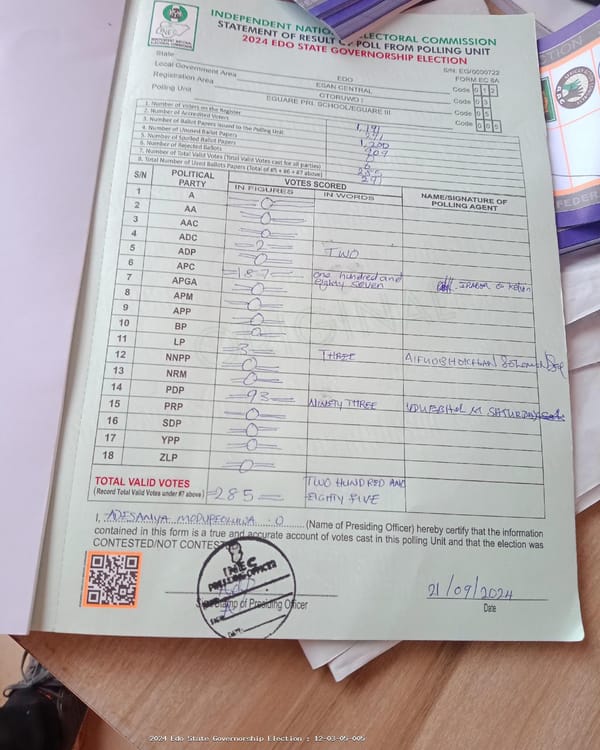 INDEPENDENT NATIONAL ELECTORAL COMMISSION
STATEMENT OF RESULT OF POLL FROM POLLING UNIT
2024 EDO STATE GOVERNORSHIP ELECTION
S/N: EG/0000722
FORM EC 8A
State EDO Code 012
Local Government Area ESAN CENTRAL Code 03
Registration Area OTORUWO I Code 05
Polling Unit EGUARE PRI. SCHOOL/EGUARE III Code 005
1. Number of Voters on the Register 1,191
2. Number of Accredited Voters 291
3. Number of Ballot Papers Issued to the Polling Unit 1,200
4. Number of Unused Ballot Papers 909
5. Number of Spoiled Ballot Papers
6. Number of Rejected Ballots 6
7. Number of Total Valid Votes (Total Valid Votes cast for all parties) 285
8. Total Number of Used Ballots Papers (Total of #5 + #6 + #7 above) 291
S/N POLITICAL PARTY VOTES SCORED NAME/SIGNATURE OF POLLING AGENT
IN FIGURES IN WORDS
1 A 0
2 AA 0
3 AAC 0
4 ADC 2 TWO
5 ADP 0
6 APC 187 one hundred and eighty seven
7 APGA 0
8 APM 0
9 APP 0
10 BP 0
11 LP 3 THREE
12 NNPP 0
13 NRM 0
14 PDP 93 NINETY THREE SATURDAY
15 PRP 0
16 SDP 0
17 YPP 0
18 ZLP 0
TOTAL VALID VOTES
(Record Total Valid Votes under #7 above) =285= TWO HUNDRED AND EIGHTY FIVE
I, ADESANIYA MODUPEOLUWA .O (Name of Presiding Officer) hereby certify that the information
contained in this form is a true and accurate account of votes cast in this polling Unit and that the election was
CONTESTED/NOT CONTEST
INEC
PRESIDING OFFICER
Stamp of Presiding Officer
DATE:
21/09/2024
Date
2024 Edo State Governorship Election : 12-03-05-005